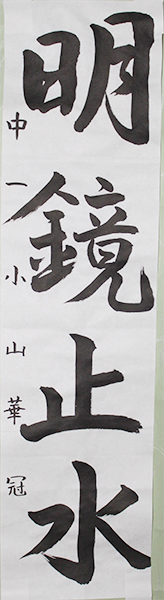 明鏡止水
中一小山華冠